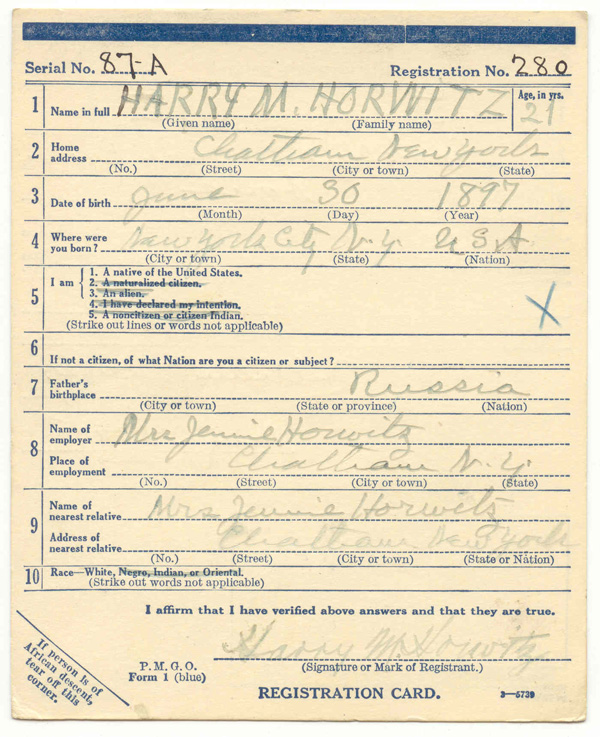 Serial No. 87-A Registration No. 280
1 Name in full HARRY M. HORWITZ Age, in yrs. 21
(Given name) (Family name)
2 Home address Chatham New York
(No.) (Street) (City or town) (State)
3 Date of birth June 30 1897
(Month) (Day) (Year)
4 Where were you born? New York City N.Y. U.S.A
(City or town) (State) (Nation)
5 I am
1. A native of the United States.
2. A naturalized citizen.
3. An alien.
4. I have declared my intention.
5. A noncitizen or citizen Indian.
(Strike out lines or words not applicable)
X
6 If not a citizen, of what Nation are you a citizen or subject?
7 Father's birthplace Russia
(City or town) (State or province) (Nation)
8 Name of employer Mrs Jennie Horwitz
Place of employment Chatham N.Y.
(No.) (Street) (City or town) (State)
9 Name of nearest relative Mrs Jennie Horwitz
Address of nearest relative Chatham New York
(No.) (Street) (City or town) (State or Nation)
10 Race—White, Negro, Indian, or Oriental.
(Strike out words not applicable)
I affirm that I have verified above answers and that they are true.
Harry M. Horwitz
(Signature or Mark of Registrant.)
P. M. G. O.
Form 1 (blue)
REGISTRATION CARD. 3—5739
If person is of
African descent,
tear off this
corner.